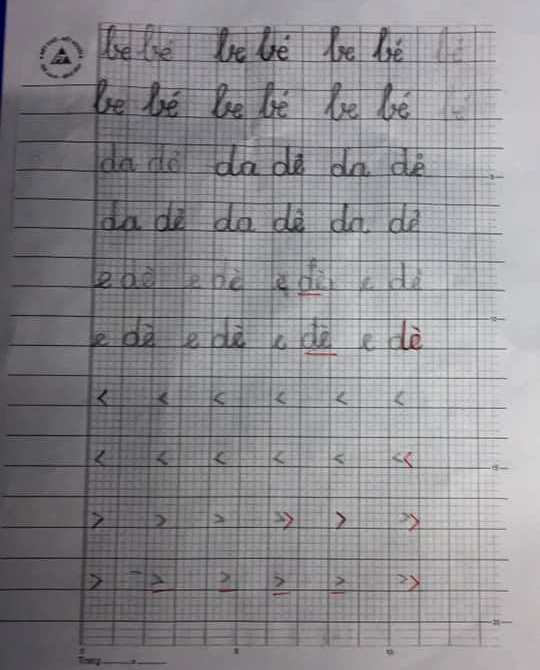 be bé be bé be bé bé
be bé be bé be bé bé
da dê da dê da dê
da dê da dê da dê
e dè e dè e dè e dè
e dè e dè e dè e dè
< < < < < <
< < < < < < <
> > > > > > > >
> > > > > > >
Trang